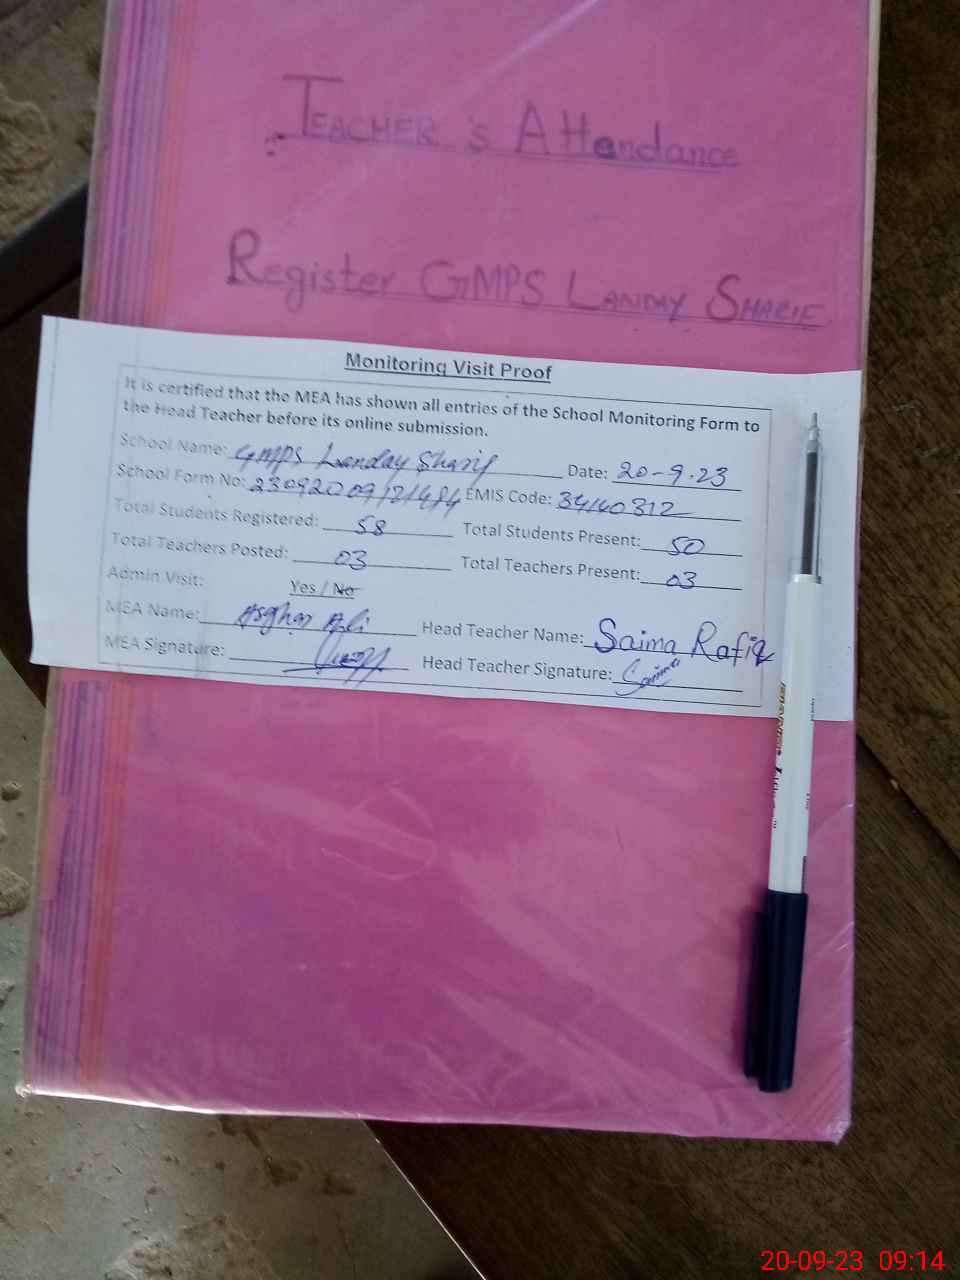 TEACHER's Attendance
Register GMPS LANDAY SHARIF
Monitoring Visit Proof
It is certified that the MEA has shown all entries of the School Monitoring Form to
the Head Teacher before its online submission.
School Name: GMPS Landay Sharif Date: 20-9-23
School Form No: EMIS Code: 34140312
Total Students Registered: 58 Total Students Present: 50
Total Teachers Posted: 03 Total Teachers Present: 03
Admin Visit: Yes / No
MEA Name: Asghar Ali Head Teacher Name: Saima Rafiq
MEA Signature: Head Teacher Signature: Saima
20-09-23 09:14